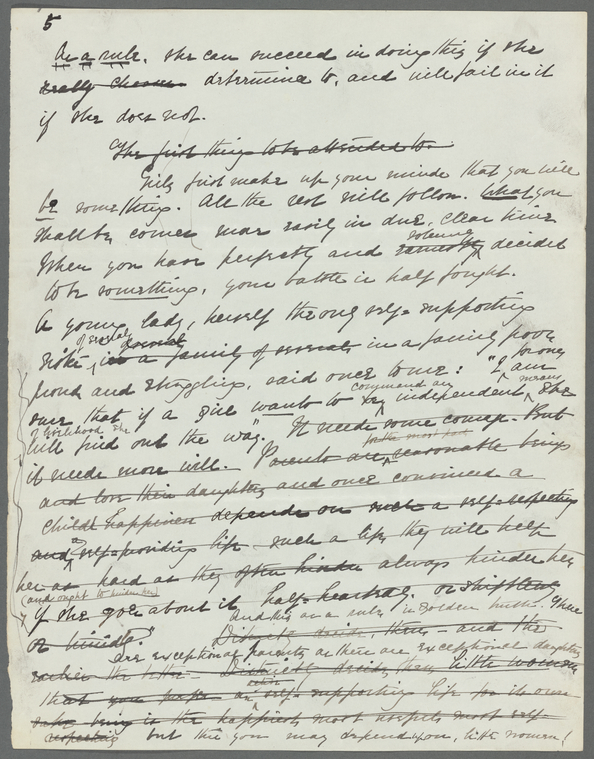 5
As a rule, she can succeed in doing this if she
really chooses determine to, and will fail in it
if she does not.
The first thing to be attended to
Girls first make up your minds that you will
be something. All the rest will follow. What you
shall be comes more easily in due, clear time
When you have perfectly and solemnly decided
to be something, your battle is half fought.
A young lady, herself the one self-supporting
of several
in a family of several in a family poor
proud and struggling, said once to me: "I for one am
command any means
sure that if a girl wants to be independent she
of livelihood she
will find out the way." It needs some courage. But
for the most part
it needs more will. Parents are reasonable beings
and love their daughters and once convinced a
child's happiness depends on such a self-respecting
and self-providing life such a life they will help
her as hard as they often hinder always hinder her
(and ought to hinder her)
if she goes about it half-heartedly, or shiftless
And this as a rule in golden
or
Distinctly decide, then - and the
are exceptional parents as there are exceptional daughters
earlier the better. Distinctly decide, then little women
that you prefer a self-supporting life for its own
sake being is the happiest, most most self-
respecting but this you may depend upon, little women!